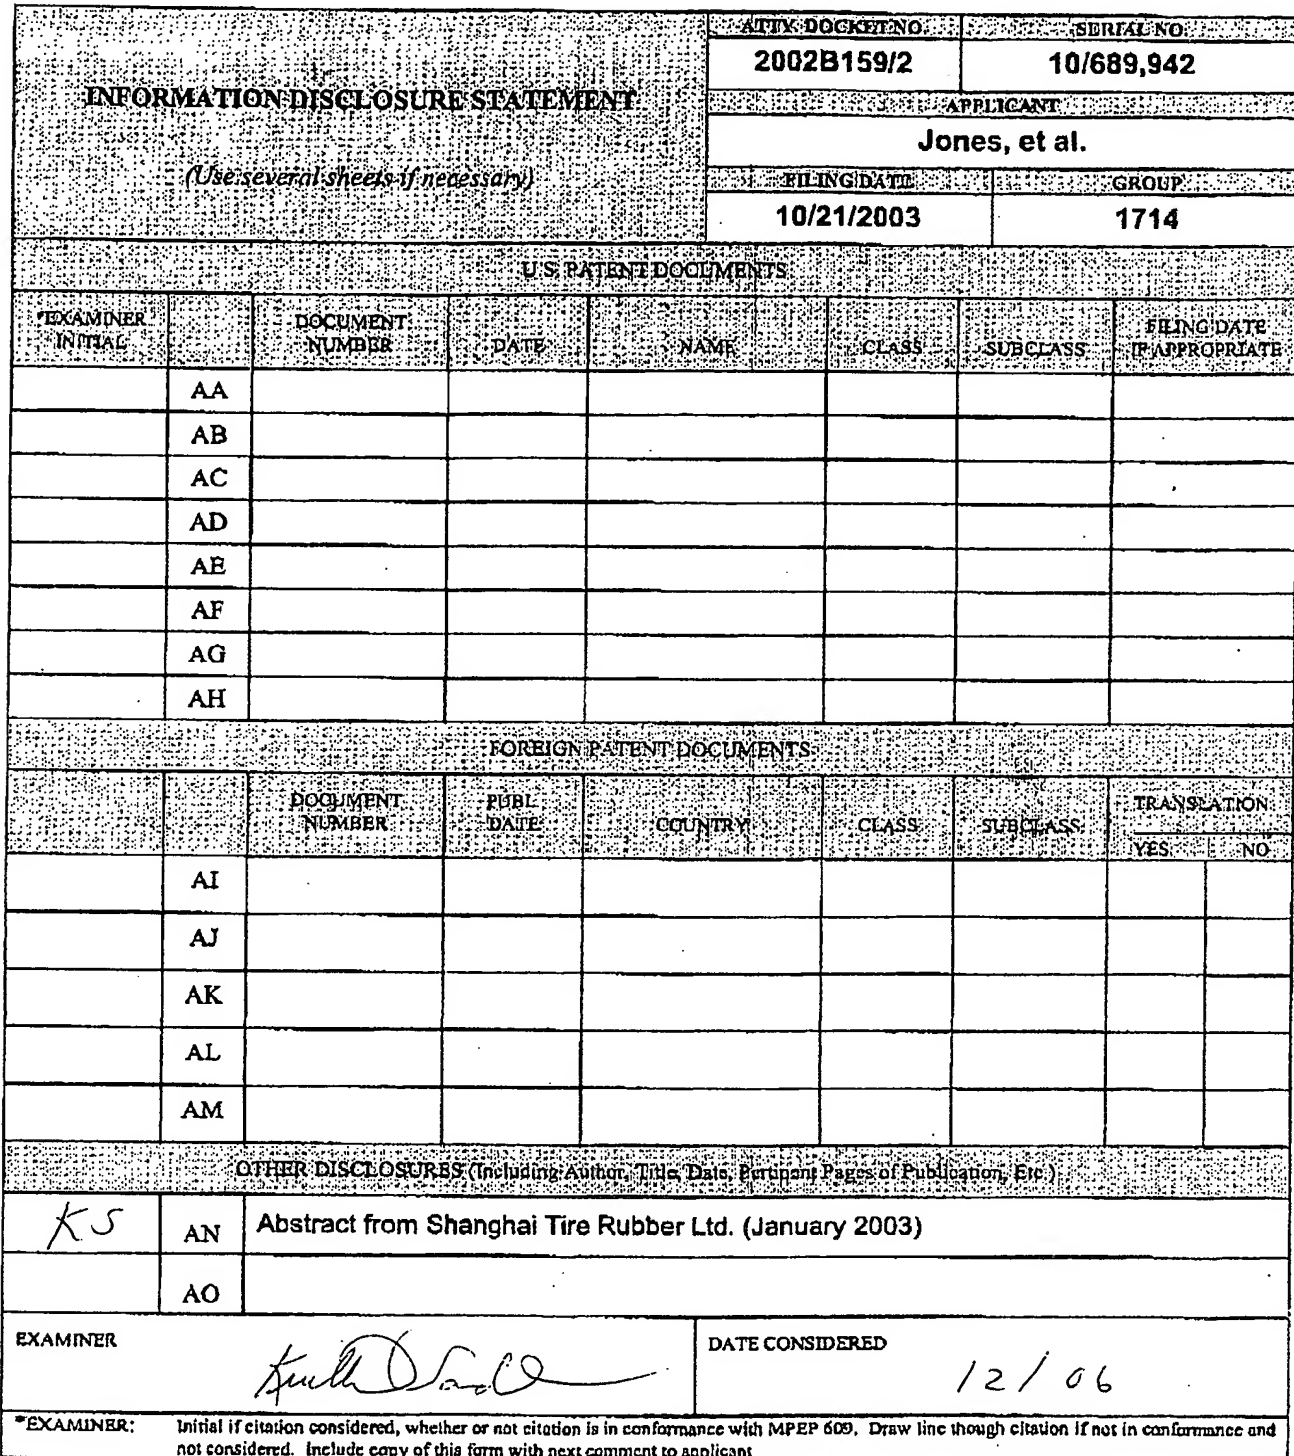 INFORMATION DISCLOSURE STATEMENT
(Use several sheets if necessary)
ATTY. DOCKET NO. SERIAL NO.
2002B159/2 10/689,942
APPLICANT
Jones, et al.
FILING DATE GROUP
10/21/2003 1714
U.S. PATENT DOCUMENTS
*EXAMINER INITIAL DOCUMENT NUMBER DATE NAME CLASS SUBCLASS FILING DATE IF APPROPRIATE
AA
AB
AC
AD
AE
AF
AG
AH
FOREIGN PATENT DOCUMENTS
DOCUMENT NUMBER PUBL. DATE COUNTRY CLASS SUBCLASS TRANSLATION
YES NO
AI
AJ
AK
AL
AM
OTHER DISCLOSURES (Including Author, Title, Date, Pertinent Pages of Publication, Etc.)
KS AN Abstract from Shanghai Tire Rubber Ltd. (January 2003)
AO
EXAMINER DATE CONSIDERED
12/06
*EXAMINER: Initial if citation considered, whether or not citation is in conformance with MPEP 609. Draw line though citation if not in conformance and
not considered. Include copy of this form with next comment to applicant